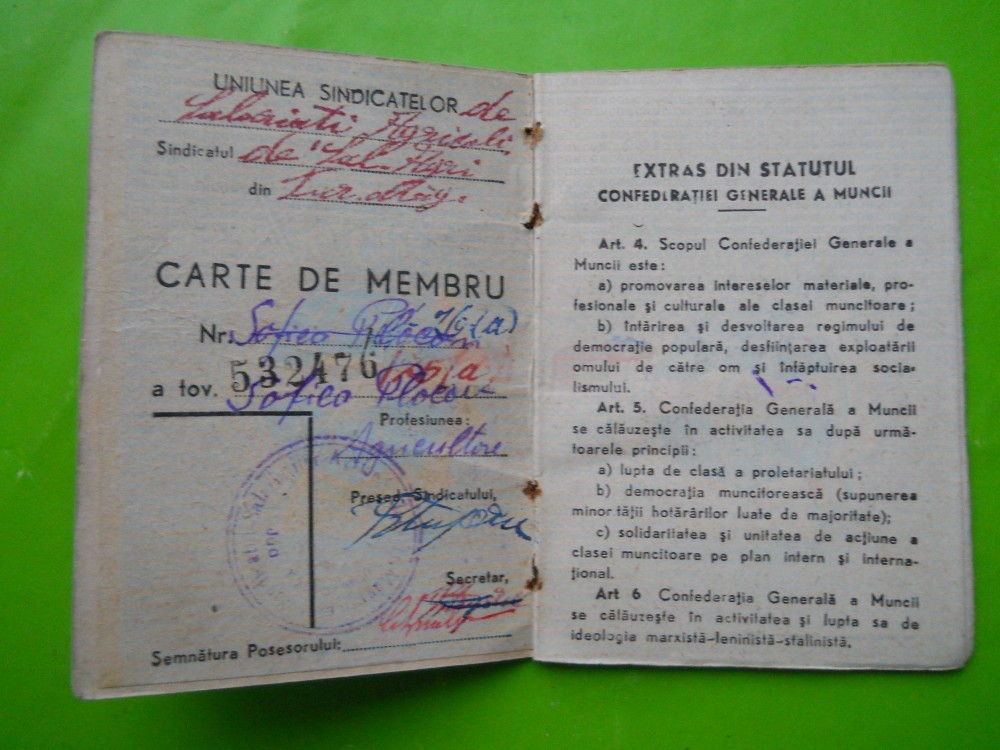 UNIUNEA SINDICATELOR de
Salariati Agricoli
Sindicatul de Sal. Agri
din
CARTE DE MEMBRU
Nr. Sofica
532476
a tov. Sofica
Profesiunea:
Agricultore
Președ. Sindicatului,
Secretar,
Semnătura Posesorului:
EXTRAS DIN STATUTUL
CONFEDERAȚIEI GENERALE A MUNCII
Art. 4. Scopul Confederației Generale a
Muncii este:
a) promovarea intereselor materiale, pro-
fesionale și culturale ale clasei muncitoare;
b) întărirea și desvoltarea regimului de
democrație populară, desființarea exploatării
omului de către om și înfăptuirea socia-
lismului.
Art. 5. Confederația Generală a Muncii
se călăuzește în activitatea sa după urmă-
toarele principii:
a) lupta de clasă a proletariatului;
b) democrația muncitorească (supunerea
minorității hotărârilor luate de majoritate);
c) solidaritatea și unitatea de acțiune a
clasei muncitoare pe plan intern și interna-
țional.
Art 6 Confederația Generală a Muncii
se călăuzește în activitatea și lupta sa de
ideologia marxistă-leninistă-stalinistă.